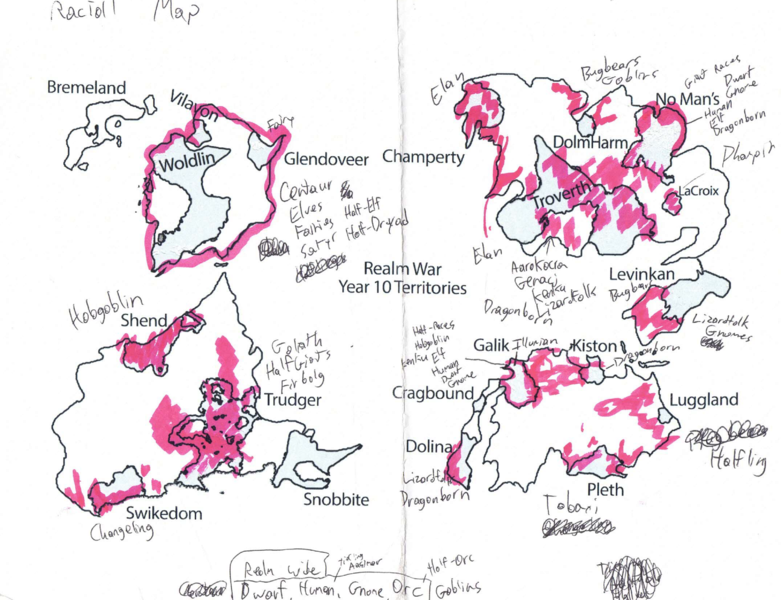 Raciall Map
Bremeland
Vilayon
Woldlin
Fairy
Glendoveer
Centaur
Elves
Fairies Half-Elf
Satyr Half-Dryad
Elan
Bugbears
Goblins
Giant Races
Dwarf
Gnome
No Man's
Human
Elf
Dragonborn
Champerty
DolmHarm
Troverth
LaCroix
Elan
Aarakocra
Genasi
Kenku
Lizardfolk
Dragonborn
Realm War
Year 10 Territories
Levinkan
Bugbear
Lizardfolk
Gnomes
Hobgoblin
Shend
Goliath
Half Giants
Firbolg
Trudger
Swikedom
Changeling
Snobbite
Half-Races
Hobgoblin
Kenku Elf
Human
Dwarf
Gnome
Galik Illumian
Kiston
Dragonborn
Cragbound
Luggland
Halfling
Dolina
Lizardfolk
Dragonborn
Pleth
Tobari
Realm Wide
Tiefling
Aasimar
Half-Orc
Dwarf, Human, Gnome, Orc Goblins